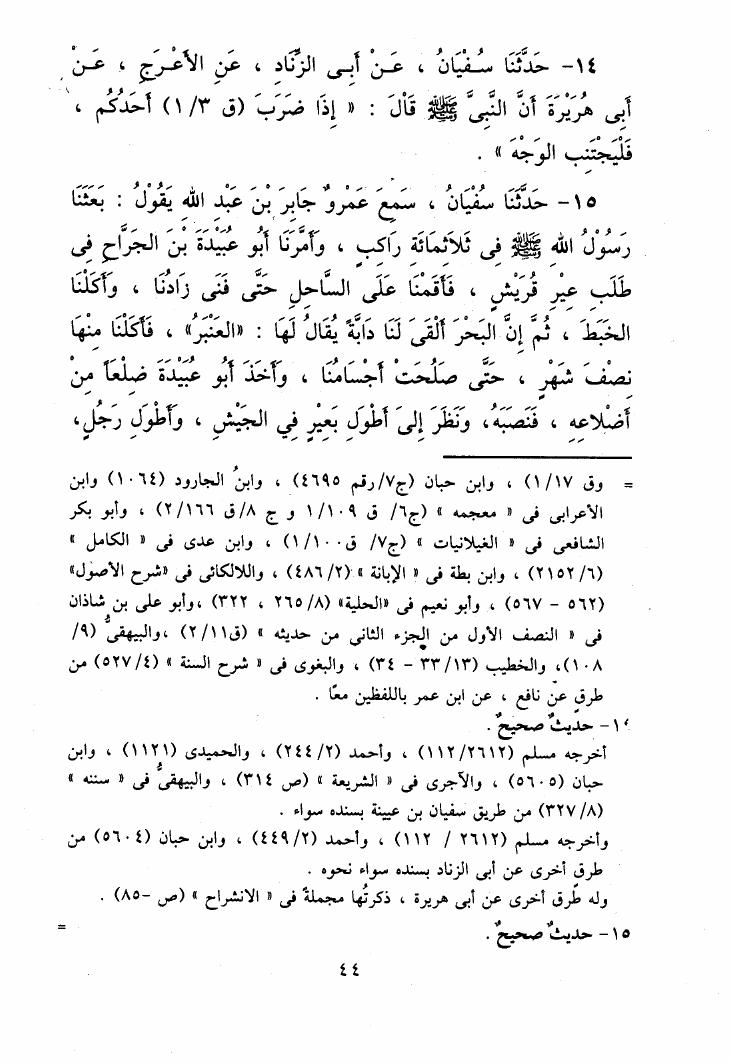 ١٤- حَدَّثَنَا سُفْيَانُ ، عَنْ أَبِى الزِّنَادِ ، عَنِ الأَعْرَجِ ، عَنْ
أَبِى هُرَيْرَةَ أَنَّ النَّبِىَّ ﷺ قَالَ : « إِذَا ضَرَبَ (ق ١/٣) أَحَدُكُم ،
فَلْيَجْتَنِبِ الوَجْهَ » .
١٥- حَدَّثَنَا سُفْيَانُ ، سَمِعَ عَمْروٌ جَابِرَ بْنَ عَبْدِ اللهِ يَقُولُ : بَعَثَنَا
رَسُوْلُ اللهِ ﷺ فِى ثَلاَثِمَائَةِ رَاكِبٍ ، وَأَمَّرَنَا أَبُو عُبَيْدَةَ بْنَ الجَرَّاحِ فِى
طَلَبِ عِيْرِ قُرَيْشٍ ، فَأَقَمْنَا عَلَى السَّاحِلِ حَتَّى فَنَى زَادُنَا ، وَأَكَلْنَا
الخَبَطَ ، ثُمَّ إِنَّ البَحْرَ أَلْقَىَ لَنَا دَابَّةً يُقَالُ لَهَا : «العَنْبَرُ» ، فَأَكَلْنَا مِنْهَا
نِصْفَ شَهْرٍ ، حَتَّى صَلُحَتْ أَجْسَامُنَا ، وَأَخَذَ أَبُو عُبَيْدَةَ ضِلَعاً مِنْ
أَضْلاَعِهِ ، فَنَصَبَهُ، وَنَظَرَ إِلىَ أَطْوَلِ بَعِيْرٍ فِي الجَيْشِ ، وَأَطْوَلِ رَجُلٍ،
= وق ١/١٧) ، وابن حبان (ج٧/رقم ٤٦٩٥) ، وابنُ الجارود (١٠٦٤) وابن
الأعرابى فى « معجمه » (ج٦/ ق ١/١٠٩ و ج ٨/ق ٢/١٦٦) ، وأبو بكر
الشافعى فى « الغيلانيات » (ج٧/ ق١/١٠٠) ، وابن عدى فى « الكامل »
(٢١٥٢/٦) ، وابن بطة فى « الإبانة » (٤٨٦/٢) ، واللالكائى فى «شرح الأصول»
(٥٦٢ - ٥٦٧) ، وأبو نعيم فى «الحلية» (٢٦٥/٨ ، ٣٢٢) ،وأبو على بن شاذان
فى « النصف الأول من الجزء الثانى من حديثه » (ق٢/١١) ،والبيهقىُّ (٩/
١٠٨)، والخطيب (٣٣/١٣ - ٣٤) ، والبغوى فى « شرح السنة » (٥٢٧/٤) من
طرقٍ عن نافع ، عن ابن عمر باللفظين معًا .
١٤- حديثٌ صحيحٌ .
أخرجه مسلم (١١٢/٢٦١٢) ، وأحمد (٢٤٤/٢) ، والحميدى (١١٢١) ، وابن
حبان (٥٦٠٥) ، والآجرى فى « الشريعة » (ص ٣١٤) ، والبيهقىُّ فى « سننه »
(٣٢٧/٨) من طريق سفيان بن عيينة بسنده سواء .
وأخرجه مسلم (٢٦١٢ / ١١٢) ، وأحمد (٤٤٩/٢) ، وابن حبان (٥٦٠٤) من
طرق أخرى عن أبى الزناد بسنده سواء نحوه .
وله طُرق أخرى عن أبى هريرة ، ذكرتُها مجملةً فى « الانشراح » (ص -٨٥) .
١٥- حديثٌ صحيحٌ . =
٤٤